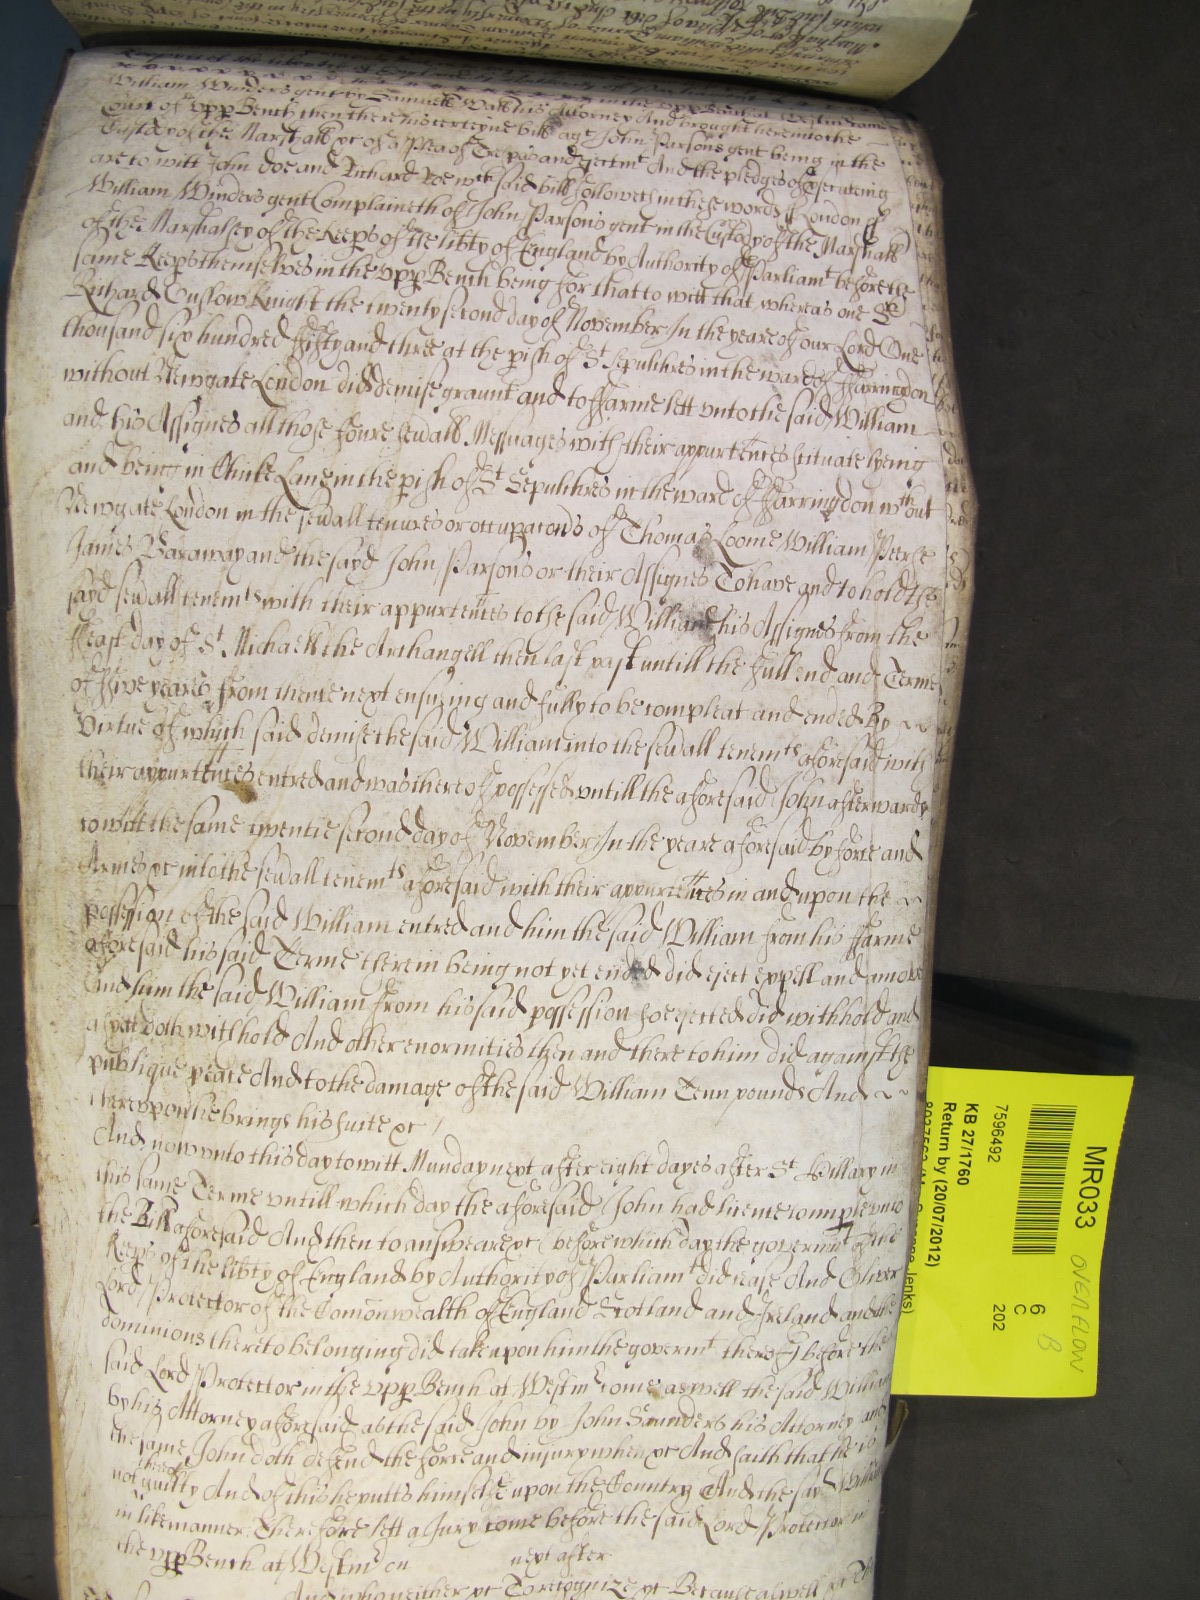 William Winders gent by Samuell Wall his Attorney And brought here into the
Court of upp Bench then there his certeyne bill agt John Parsons gent being in the
Custody of the Marshall &c of a Plea of Trespas and Ejectmt And the pledges of prsecuting
are to witt John Doe and Richard Roe wch said bill followeth in these words ss London ss
William Winders gent Complaineth of John Parsons gent in the Custody of the Marshall
of the Marshalsey of the Keeps of the libty of England by Authority of Parliamt before the
same Keeps themselves in the upp Bench being for that to witt that whereas one Sr
Richard Onslow Knight the twenty second day of November In the yeare of our Lord One
thousand six hundred fifty and three at the pish of St Sepulchres in the ward of Farringdon
without Newgate London did demise graunt and to ffarme lett unto the said William
and his Assignes all those foure sevall Messuages with their appurtences scituate lyeing
and being in Chicke Lane in the pish of St Sepulchres in the ward of Farringdon wthout
Newgate London in the sevall tenures or occupacons of Thomas Loome William Peerse
James Baraway and the sayd John Parsons or their Assignes To have and to hold the
sayd sevall tenemts with their appurtences to the said William his Assignes from the
ffeast day of St Michaell the Archangell then last past untill the full end and Terme
of ffive yeares from thence next ensuying and fully to be compleat and ended By
virtue of which said demise the said William into the sevall tenemts aforesaid with
their appurtences entred and was thereof possessed untill the aforesaid John afterwards
to witt the same twentie second day of November In the yeare aforesaid by force and
Armes &c into the sevall tenemts aforesaid with their appurtences in and upon the
possession of the said William entred and him the said William from his ffarme
aforesaid his said Terme therein being not yet ended did eject expell and amove
And him the said William from his said possession soe ejected did withhold and
as yet doth withhold And other enormities then and there to him did against the
publique peace And to the damage of the said William Tenn pounds And
thereupon he brings his suite &c
And now unto this day to witt Munday next after eight dayes after St Hillary in
this same Terme untill which day the aforesaid John had licence to imple unto
the Bill aforesaid And then to answeare &c before which day the governmt of the
Keeps of the libty of England by Authority of Parliamt did cease And Oliver
Lord Protector of the Comonwealth of England Scotland and Ireland and the
dominions thereto belonging did take upon him the govermt thereof before the
said Lord Protector in the upp Bench at Westmr come aswell the said William
by his Attorney aforesaid as the said John by John Saunders his Attorney and
the same John doth defend the force and injury when &c And saith that he is
thereof
not guilty And of this he putts himselfe upon the Country And the sayd William
in like manner Therefore lett a Jury come before the said Lord Protector in
the upp Bench at Westmr on next after
And who neither &c To recognize &c Because aswell &c The
MR033
OVERFLOW
B
6
C
202
7596492
KB 27/1760
Return by (20/07/2012)
Jenks)